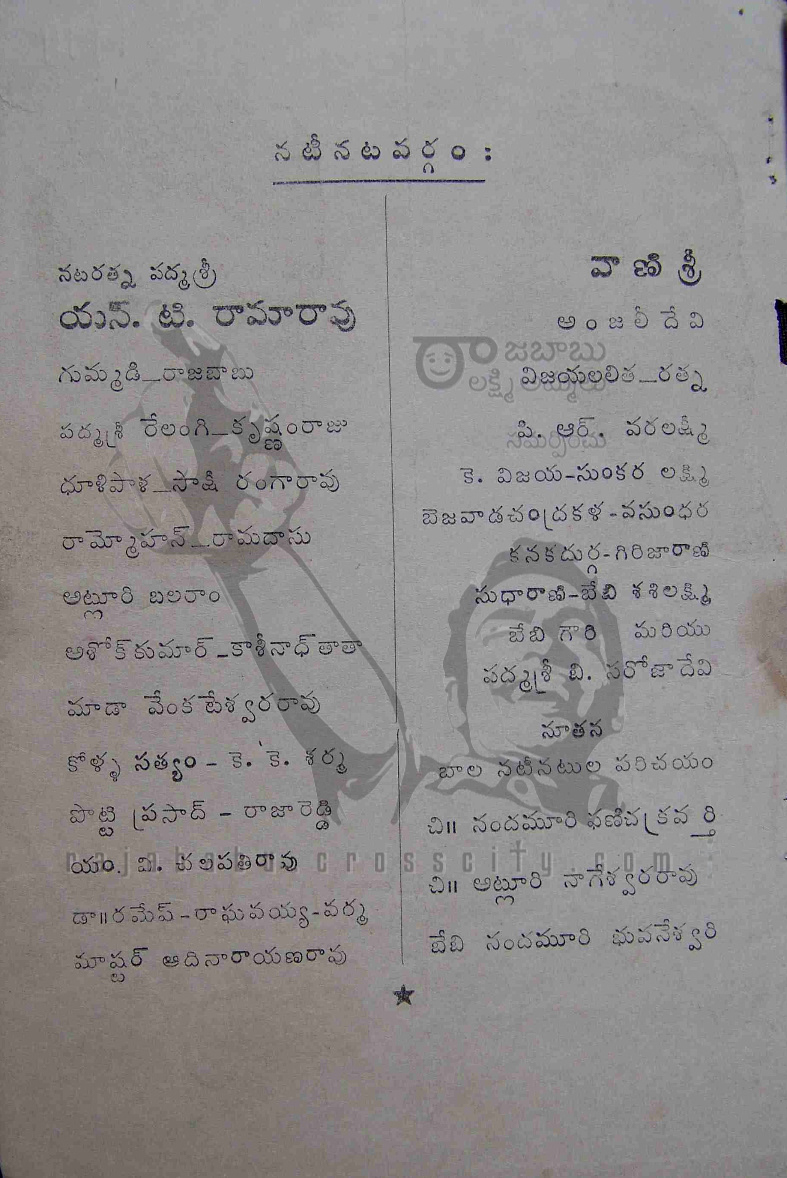 నటీనటవర్గం :
నటరత్న పద్మశ్రీ
యన్. టి. రామారావు
గుమ్మడి—రాజబాబు
పద్మశ్రీ రేలంగి—కృష్ణంరాజు
ధూళిపాళ—సాక్షి రంగారావు
రామ్మోహన్—రామదాసు
అట్లూరి బలరాం
అశోక్‌కుమార్-కాశీనాధ్ తాతా
మాడా వేంకటేశ్వరరావు
కోళ్ళ సత్యం - కె. కె. శర్మ
పొట్టి ప్రసాద్ - రాజారెడ్డి
యం. వి. చలపతిరావు
డా॥రమేష్-రాఘవయ్య-వర్మ
మాష్టర్ ఆదినారాయణరావు
వాణిశ్రీ
అంజలీదేవి
విజయలలిత—రత్న
పి. ఆర్. వరలక్ష్మి
కె. విజయ-సుంకర లక్ష్మి
బెజవాడచంద్రకళ-వసుంధర
కనకదుర్గ-గిరిజారాణి
సుధారాణి-బేబి శశిలక్ష్మి
బేబి గౌరి మరియు
పద్మశ్రీ బి. సరోజాదేవి
నూతన
బాల నటీనటుల పరిచయం
చి॥ నందమూరి ఫణిచక్రవర్తి
చి॥ అట్లూరి నాగేశ్వరరావు
బేబి నందమూరి భువనేశ్వరి
రాజబాబు
లక్ష్మి అమ్మలు
సమర్పించు
rajababu.crosscity.com